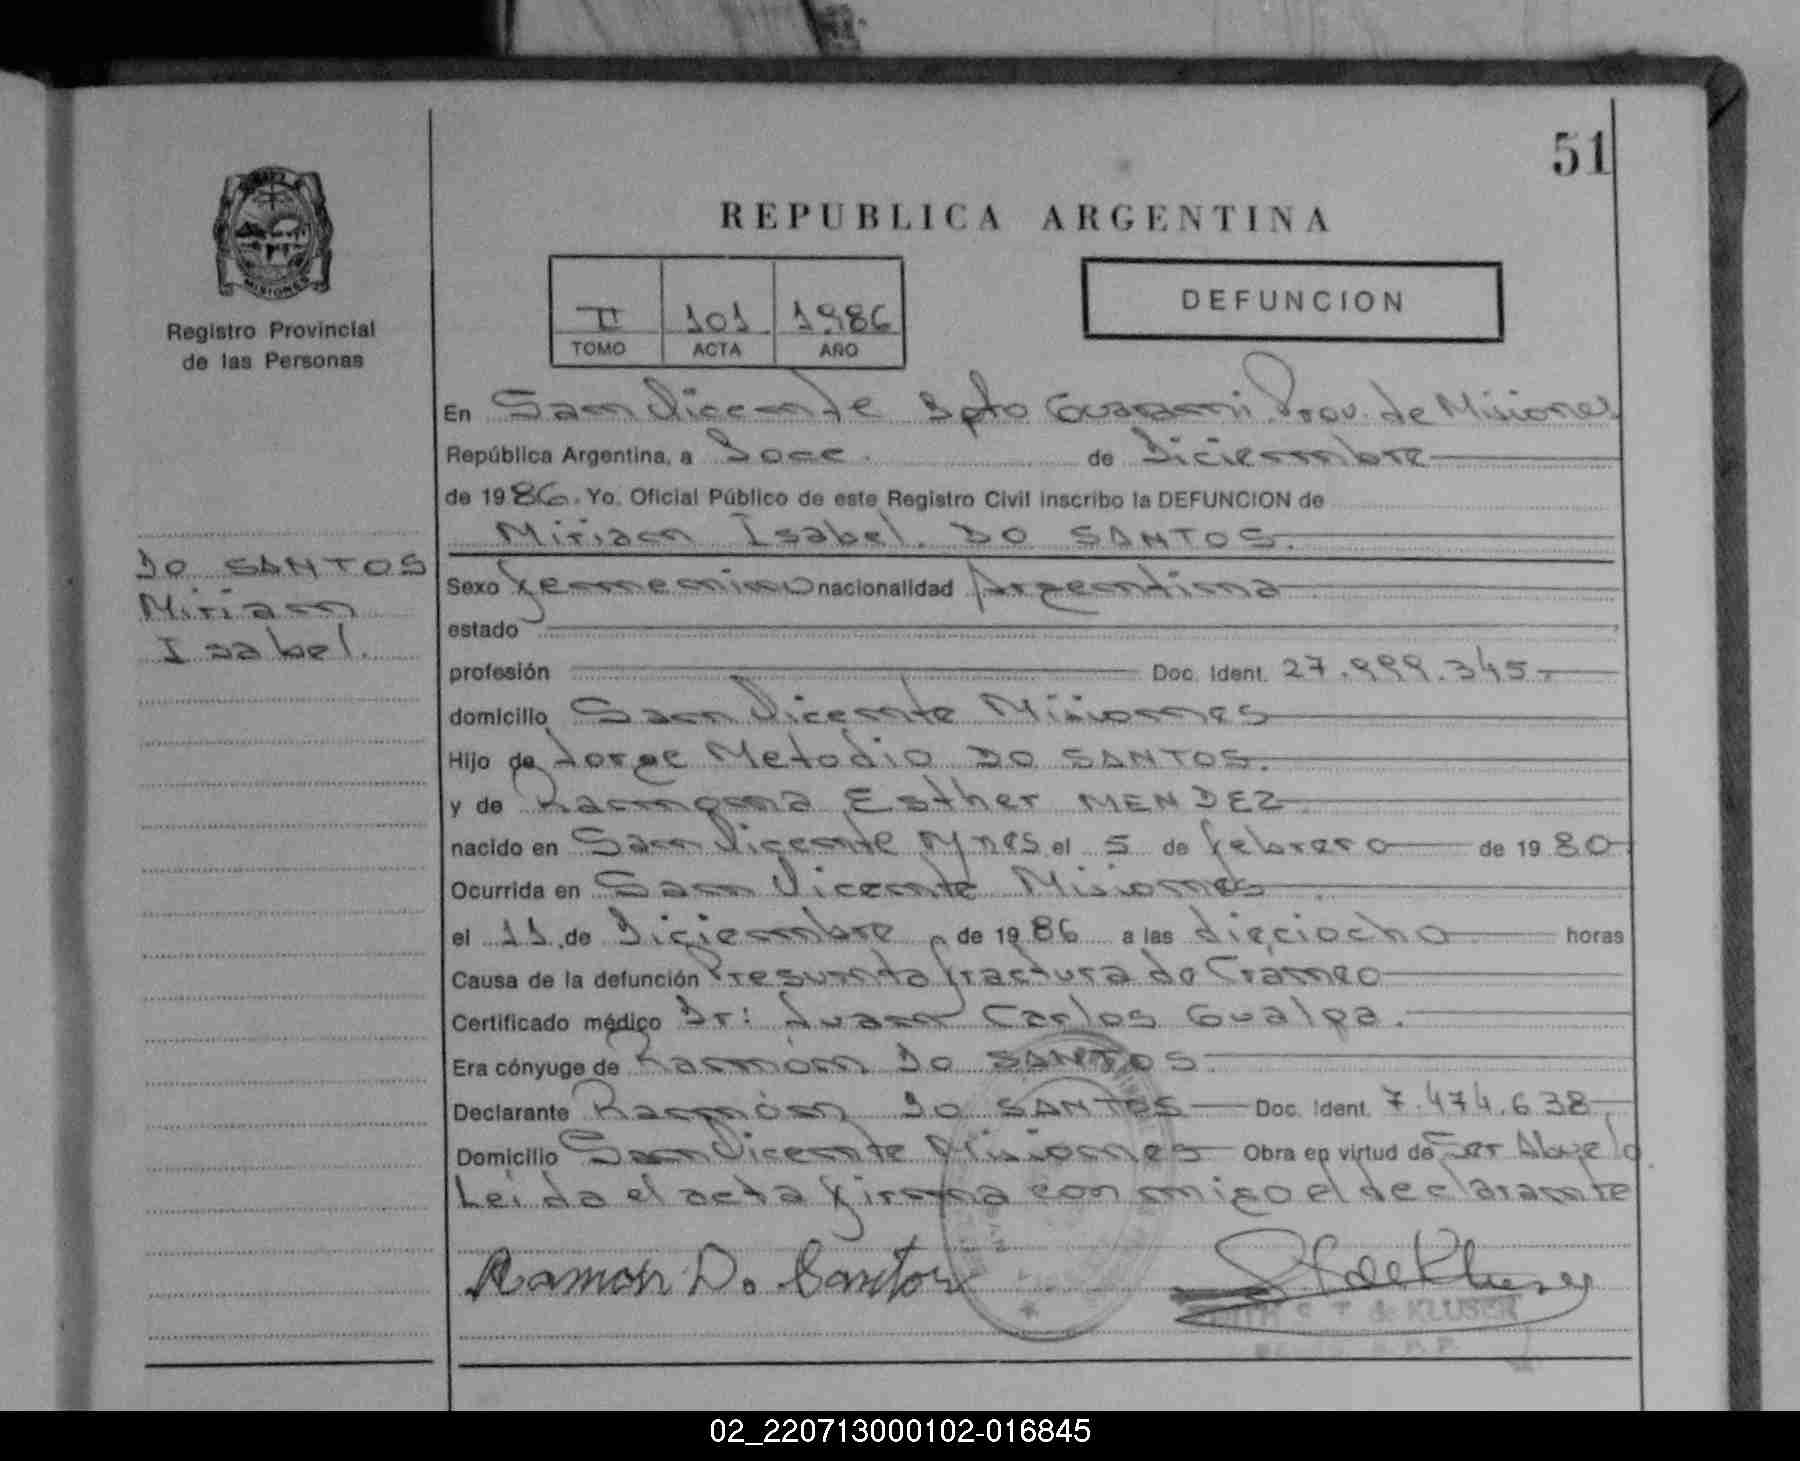 51
REPUBLICA ARGENTINA
MISIONES
Registro Provincial
de las Personas
II 101 1986
TOMO ACTA AÑO
DEFUNCION
En San Vicente Dpto Guarani Prov. de Misiones
República Argentina, a Doce de Diciembre
de 1986. Yo, Oficial Público de este Registro Civil inscribo la DEFUNCION de
Miriam Isabel. DO SANTOS.
DO SANTOS
Miriam
Isabel.
Sexo femenino nacionalidad Argentina
estado
profesión Doc. Ident. 27.999.345.
domicilio San Vicente Misiones
Hijo de Jorge Metodio DO SANTOS.
y de Ramona Esther MENDEZ
nacido en San Vicente Mnes el 5 de febrero de 1980.
Ocurrida en San Vicente Misiones
el 11 de Diciembre de 1986 a las dieciocho horas
Causa de la defunción Presunta fractura do Cráneo
Certificado médico Dr: Juan Carlos Gualpa.
Era cónyuge de Ramón DO SANTOS
Declarante Ramón DO SANTOS Doc. Ident. 7.474.638
Domicilio San Vicente Misiones Obra en virtud de Ser Abuelo
Leída el acta firma con migo el declarante
Ramon Do Santos
de KLUSER
02_220713000102-016845